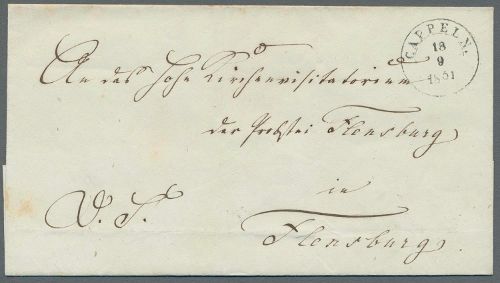 CAPPELN.
18
9
1851
An das hohe Kirchenvisitatorium
der Probstei Flensburg
in
D. S. Flensburg